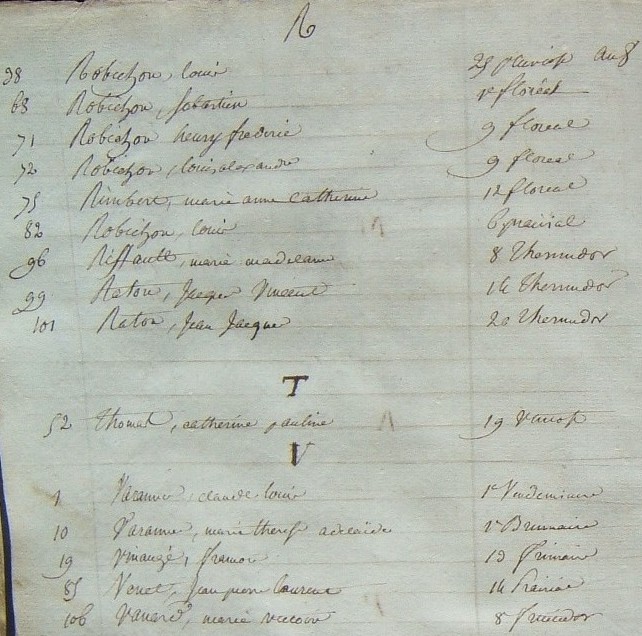 R
38 Robichon, louis 25 pluviose an 8
68 Robichon, sebastien 1er floreal
71 Robichon henry frederic 9 floreal
72 Robichon, louis alexandre 9 floreal
75 Rimbert, marie anne Catherine 12 floreal
82 Robichon, louis 6 prairial
96 Riffault, marie madelaine 8 Thermidor
99 Raton, Jacques Vincent 14 Thermidor
101 Raton, Jean Jacques 20 Thermidor
T
52 Thomas, catherine pauline 19 Ventose
V
1 Varanne, claude louis 1er Vendemiaire
10 Varanne, marie therese adelaide 1er Brumaire
19 francois frimaire
85 Venet, Jean pierre laurent 14 Prairial
106 marie victoire 8 fructidor